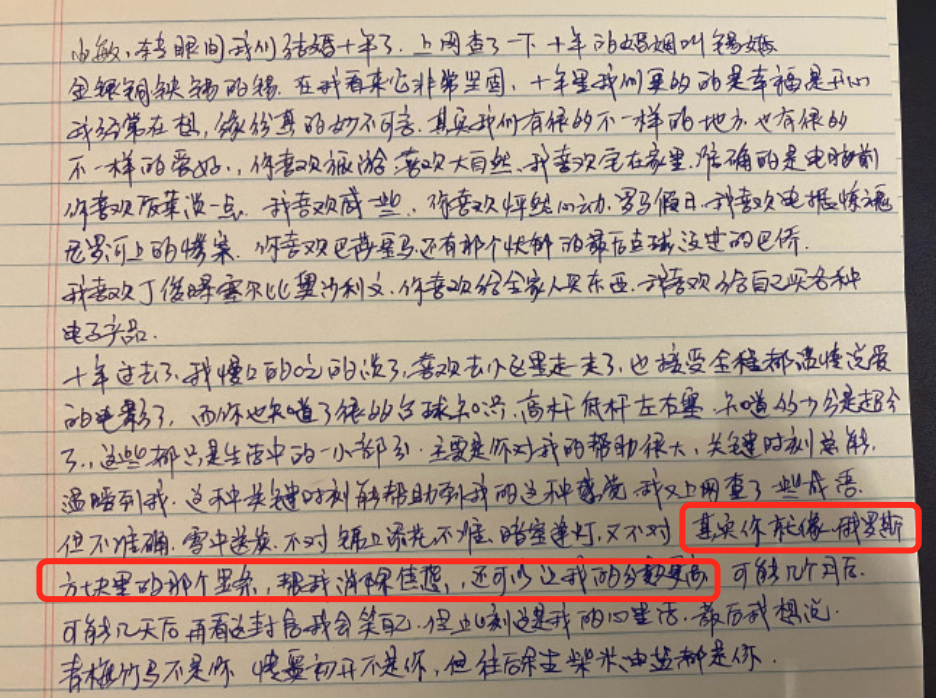 敏,转眼间我们结婚十年了.上网查了一下十年的婚姻叫锡婚
金银铜铁锡的锡.在我看来它非常坚固,十年里我们要的的是幸福是开心
我经常在想,缘份真的妙不可言.其实我们有很多不一样的地方.也有很多
不一样的爱好.,你喜欢旅游喜欢大自然.我喜欢宅在家里.准确的是电脑前
你喜欢饭菜淡一点.我喜欢咸一些.你喜欢怦然心动.罗马假日.我喜欢电锯惊魂
尼罗河上的惨案.你喜欢巴蒂罗马.还有那个忧郁的最后点球没进的巴乔.
我喜欢丁俊晖塞尔比奥沙利文.你喜欢给全家人买东西.我喜欢给自己买各种
电子产品.
十年过去了.我慢慢的吃的淡了.喜欢去小区里走一走了.也接受全程都温情没爱
的电影了,而你也知道了很多台球知识.高杆低杆左右塞.知道多少分是超分
了.,这些都只是生活中的一小部分.主要是你对我的帮助很大,关键时刻总能.
温暖到我.这种关键时刻能帮助到我的这种感觉我又上网查了一些成语.
但不准确.雪中送炭.不对锦上添花不准.暗室逢灯,又不对 其实你就像俄罗斯
方块里的那个竖条,帮我消除焦虑,还可以让我的分数更高 可能几个月后.
可能几天后再看这封信我会笑自己.但此刻这是我的心里话.最后我想说.
青梅竹马不是你 情窦初开不是你,但往后余生柴米油盐都是你.